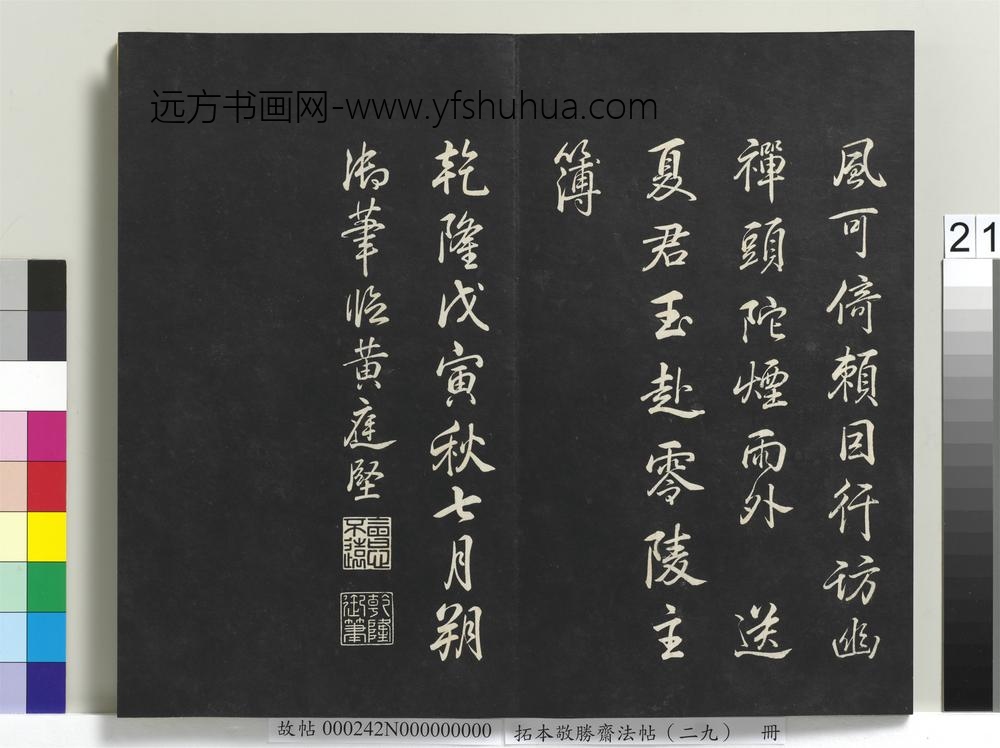 远方书画网-www.yfshuhua.com
風可倚賴因行訪幽
禪頭陀煙雨外 送
夏君玉赴零陵主
簿
乾隆戊寅秋七月朔
御筆臨黄庭堅
會心不遠
乾隆御筆
21
故帖 000242N000000000 拓本敬勝齋法帖（二九） 冊